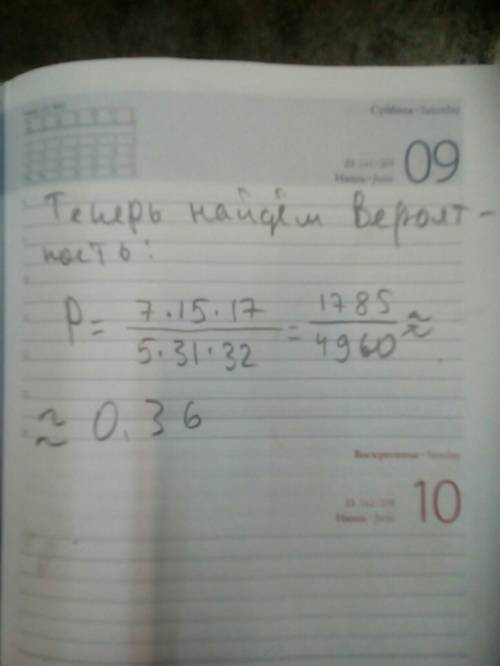 Суббота · Saturday
09
Июнь · June
Теперь найдём вероят-
ность:
P = 7·15·17 / 5·31·32 = 1785 / 4960 ≈
≈ 0,36
Воскресенье · Sunday
10
Июнь · June